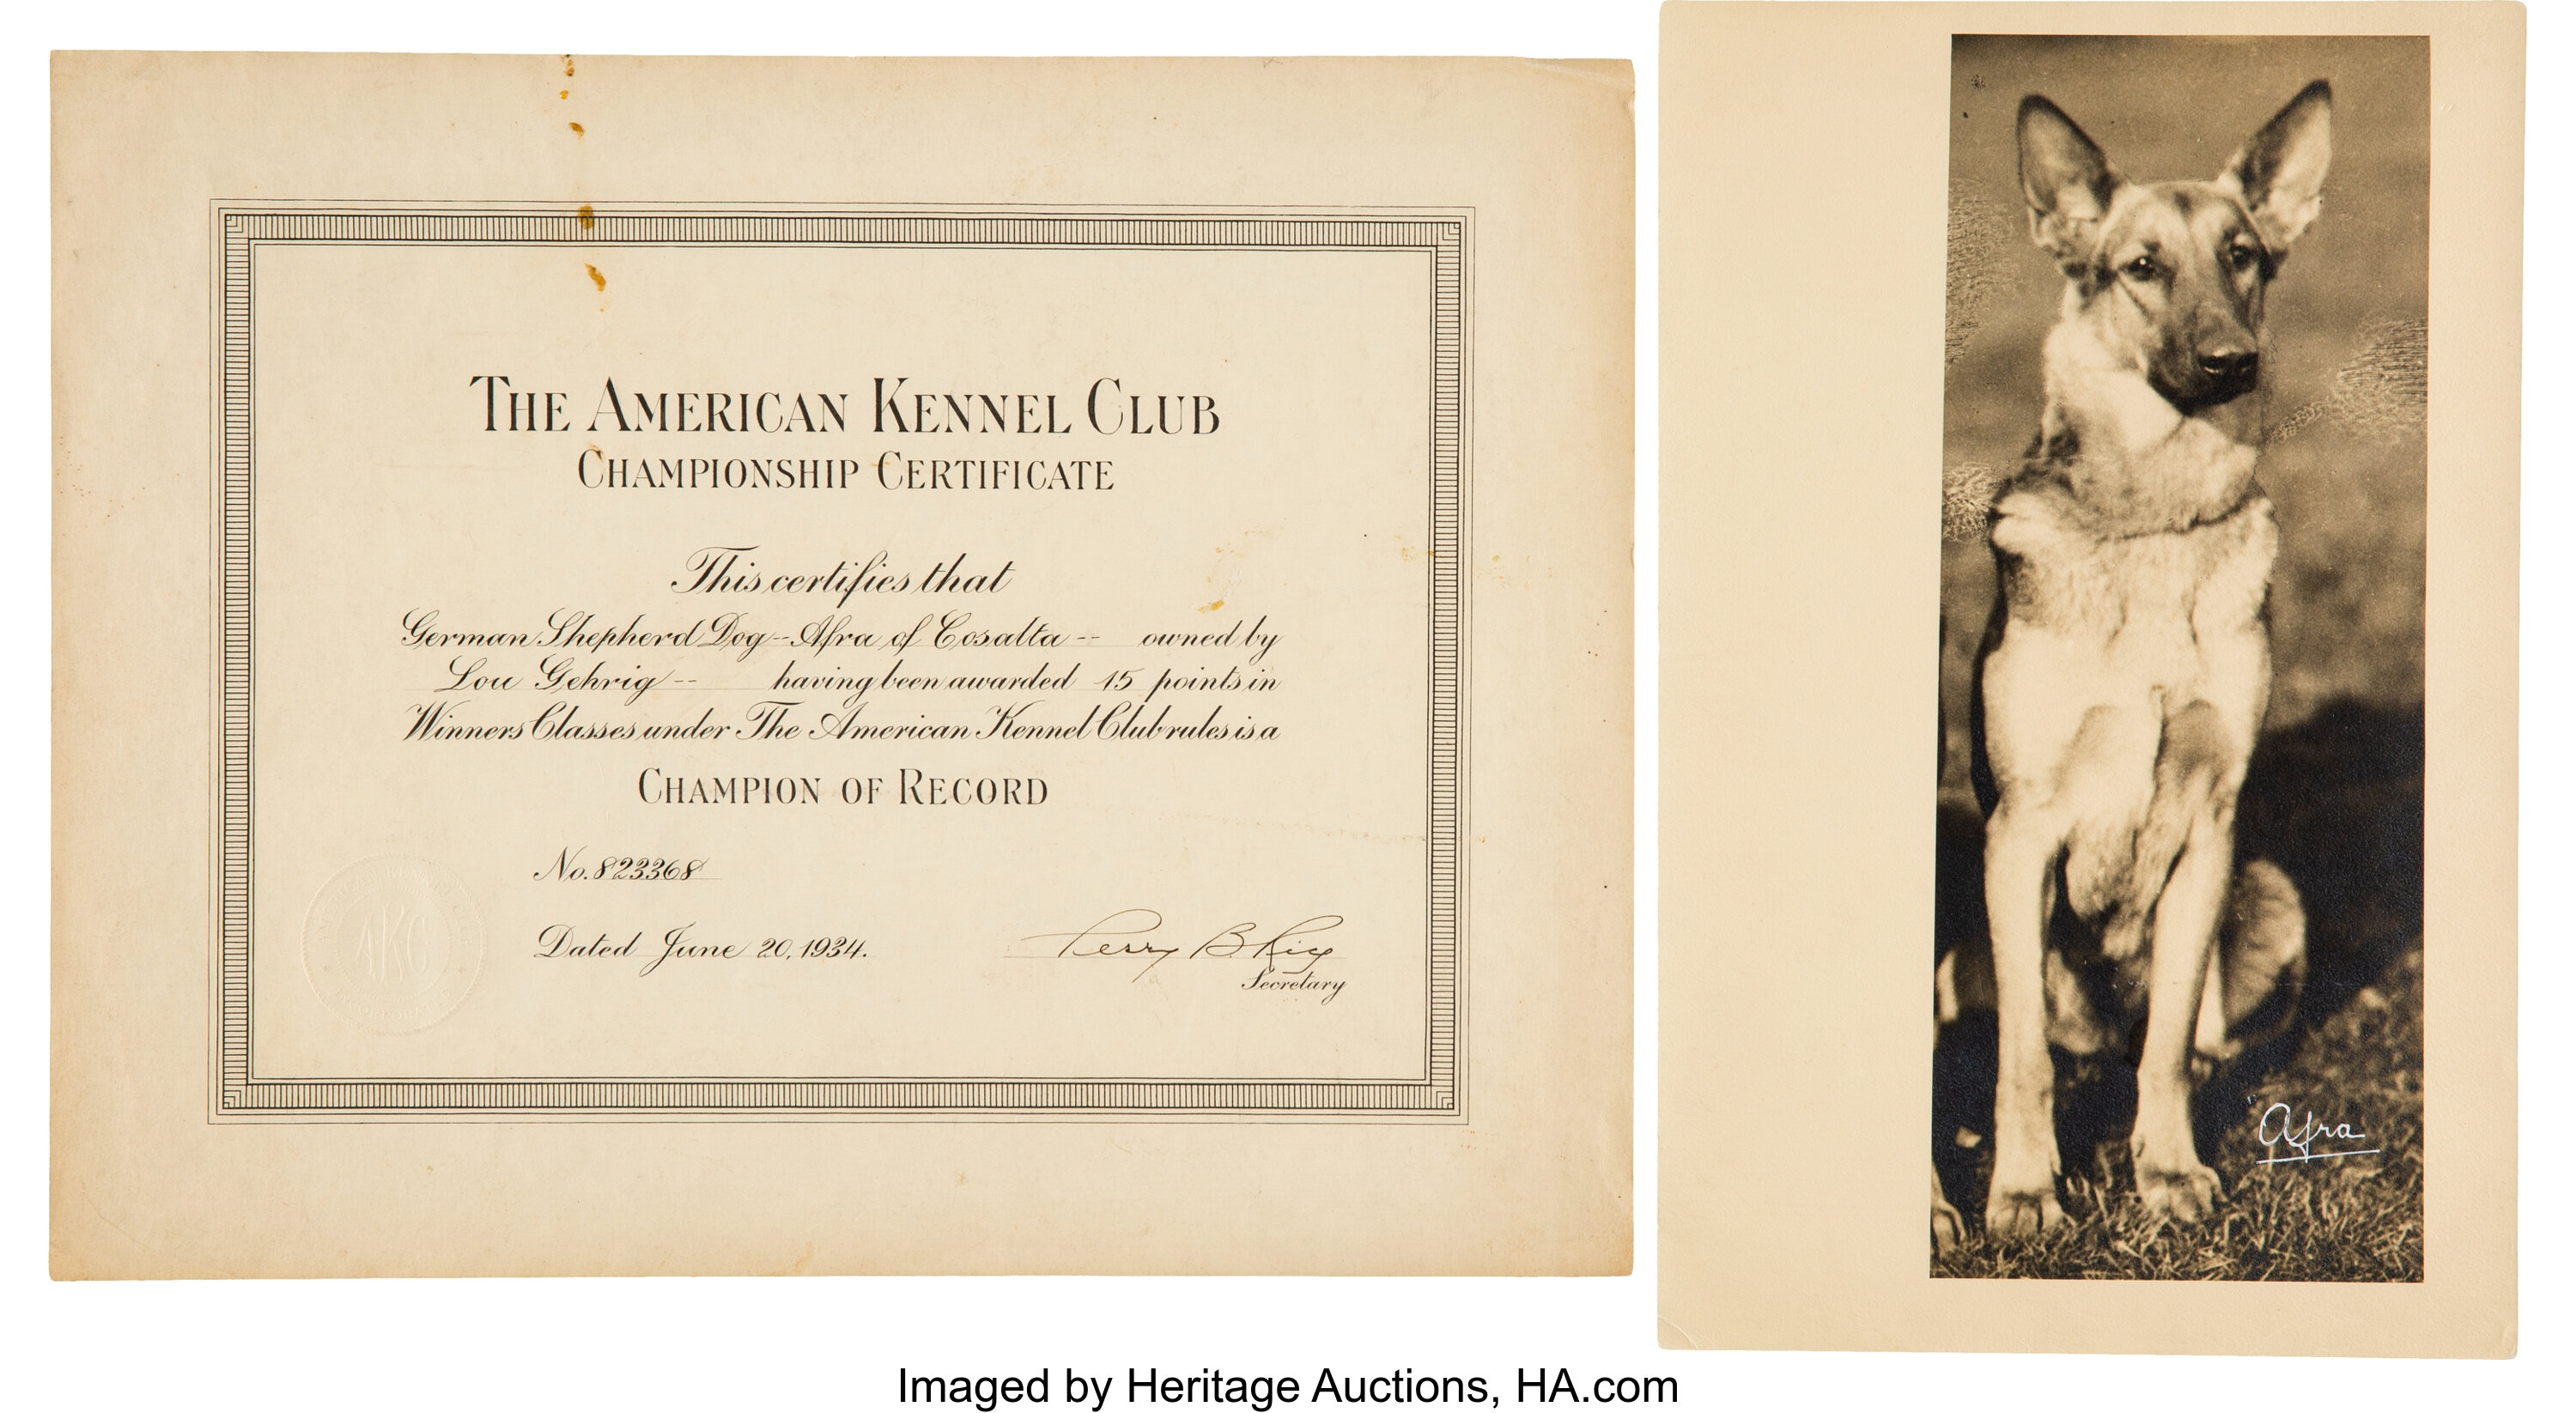 THE AMERICAN KENNEL CLUB
CHAMPIONSHIP CERTIFICATE
This certifies that
German Shepherd Dog -- Afra of Cosalta -- owned by
Lou Gehrig -- having been awarded 15 points in
Winners Classes under The American Kennel Club rules is a
CHAMPION OF RECORD
No. 823368
AKC
Dated June 20, 1934.
Perry B Rice
Secretary
Afra
Imaged by Heritage Auctions, HA.com